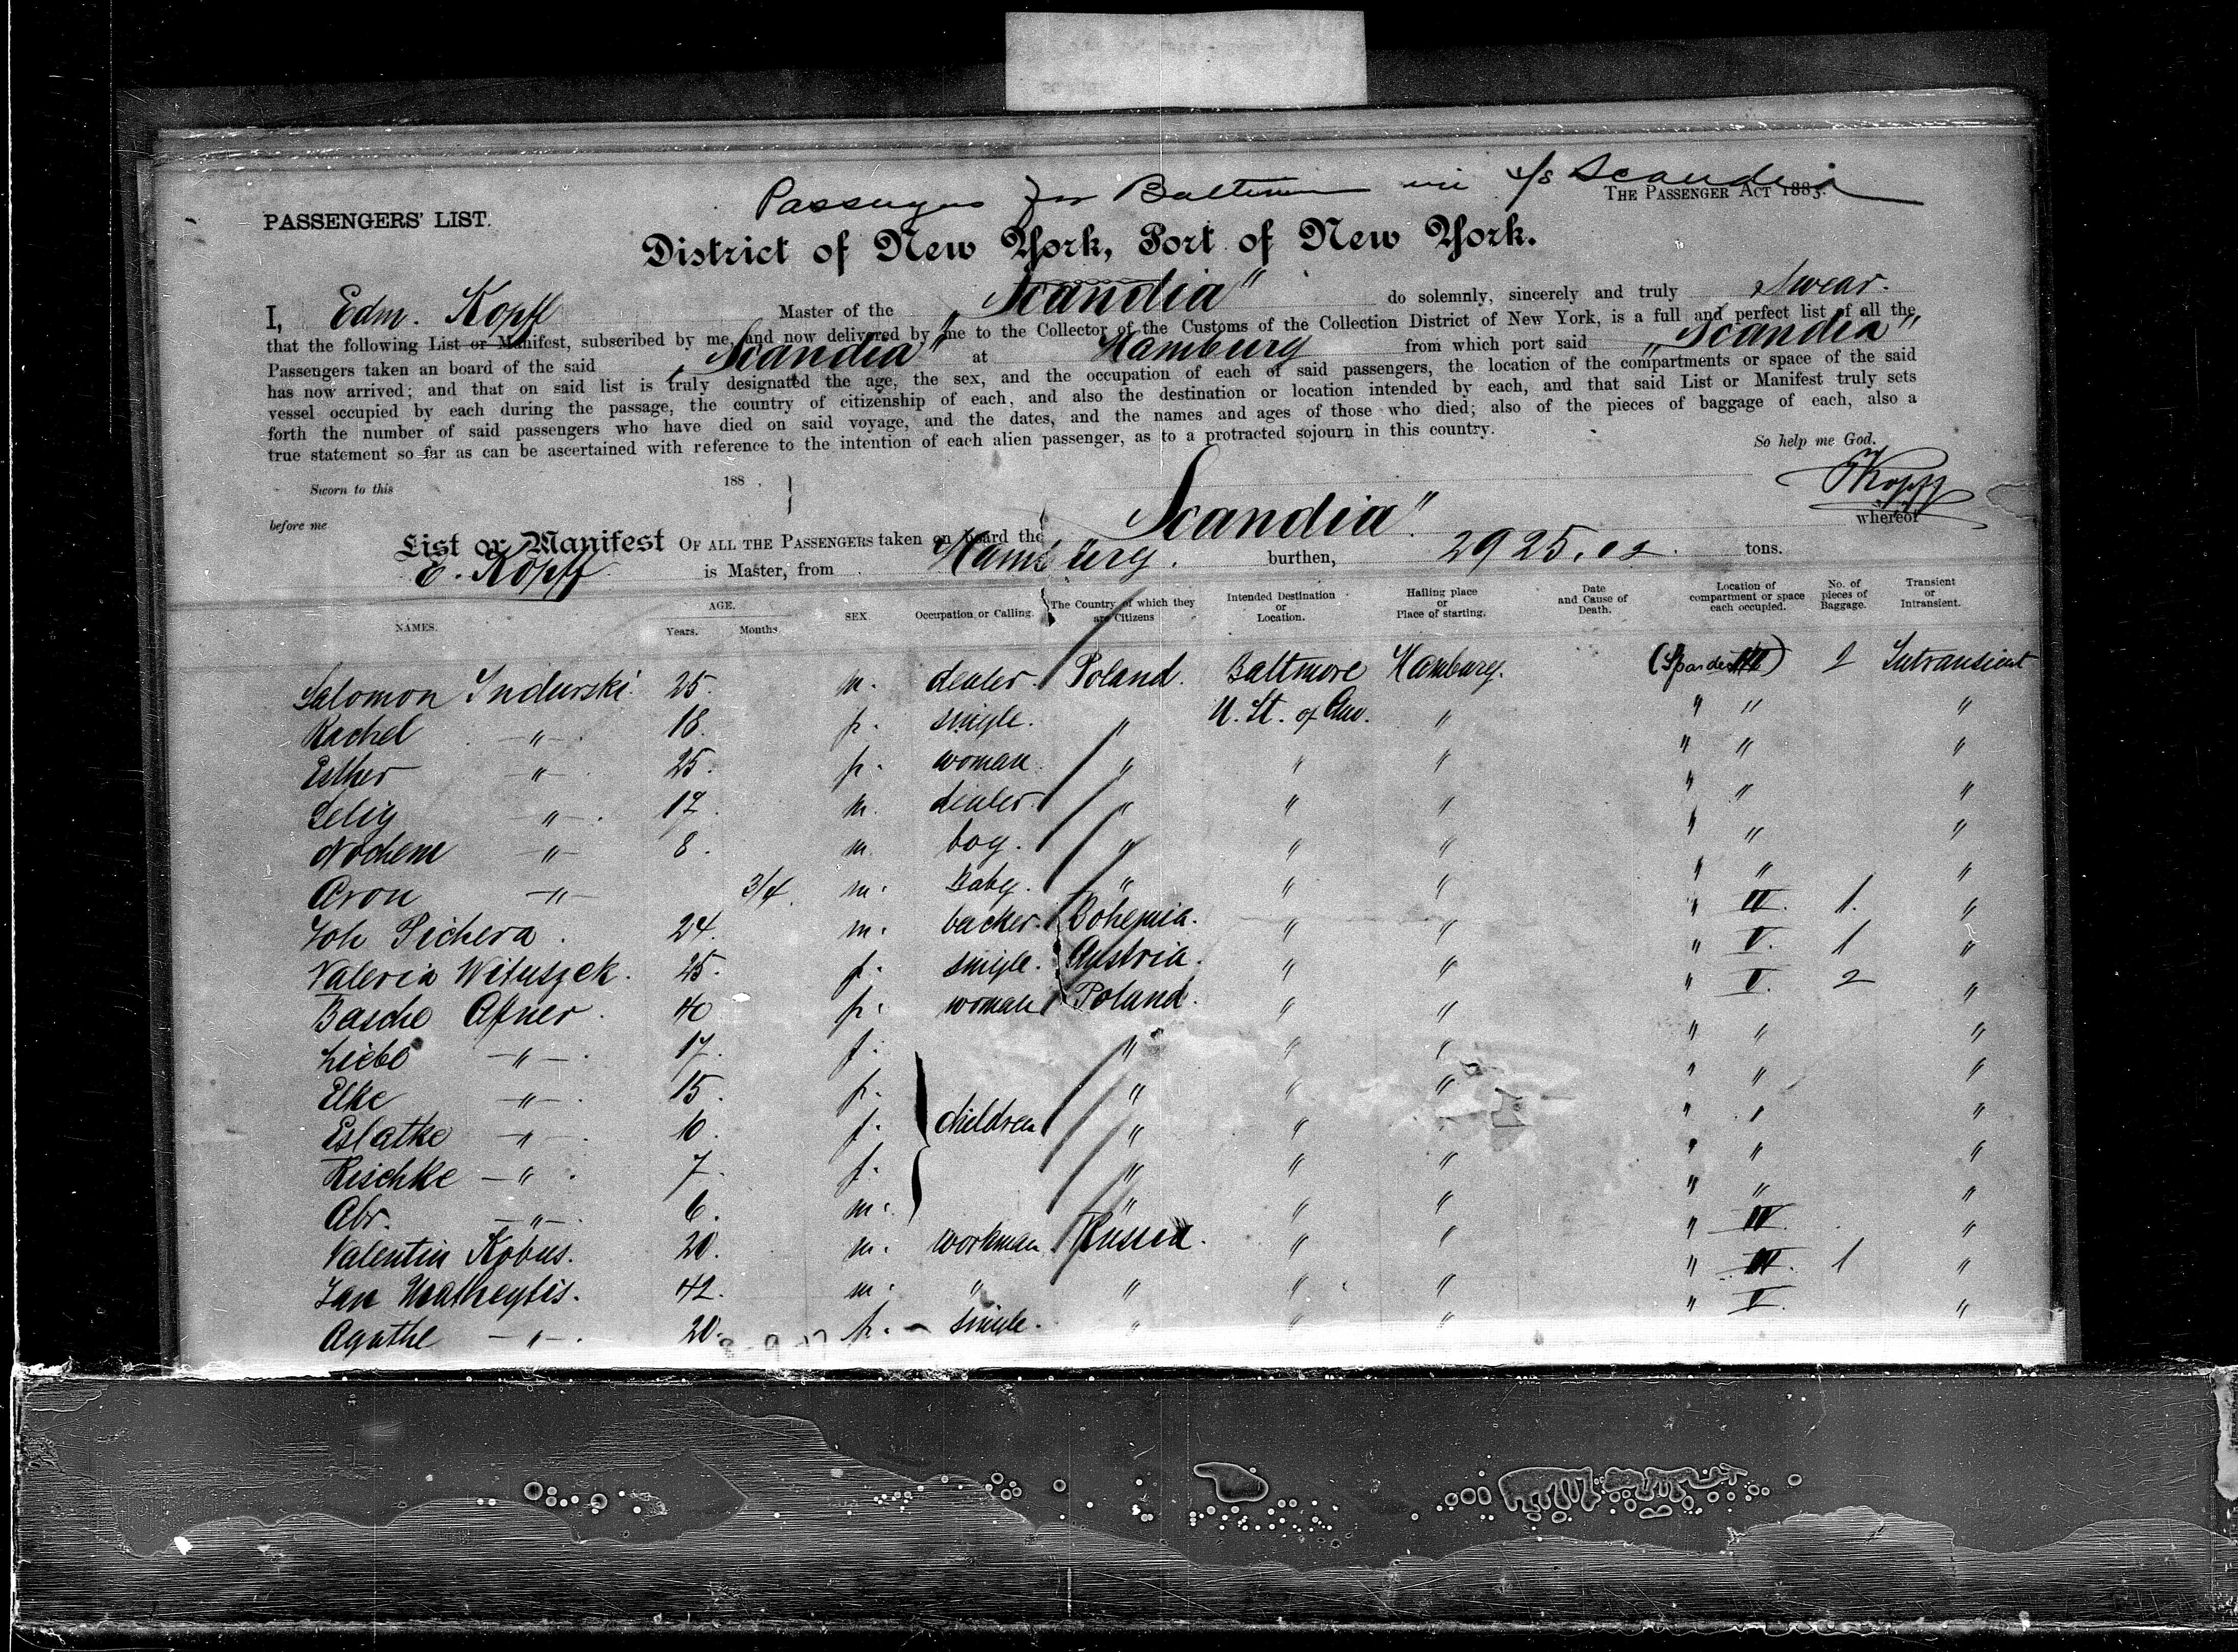 Passengers for Baltimore via s/s Scandia
THE PASSENGER ACT 1885.
PASSENGERS' LIST.
District of New York, Port of New York.
I, Edm. Kopff Master of the „Scandia" do solemnly, sincerely and truly Swear.
that the following List or Manifest, subscribed by me, and now delivered by me to the Collector of the Customs of the Collection District of New York, is a full and perfect list of all the
Passengers taken an board of the said „Scandia" at Hamburg from which port said „Scandia"
has now arrived; and that on said list is truly designated the age, the sex, and the occupation of each of said passengers, the location of the compartments or space of the said
vessel occupied by each during the passage, the country of citizenship of each, and also the destination or location intended by each, and that said List or Manifest truly sets
forth the number of said passengers who have died on said voyage, and the dates, and the names and ages of those who died; also of the pieces of baggage of each, also a
true statement so far as can be ascertained with reference to the intention of each alien passenger, as to a protracted sojourn in this country.
So help me God.
Sworn to this 188 .
EKopff
before me
List or Manifest OF ALL THE PASSENGERS taken on board the Scandia" whereof
E. Kopff is Master, from Hamburg. burthen, 2925,02. tons.
NAMES. AGE. Years. Months. SEX Occupation or Calling. The Country of which they are Citizens Intended Destination or Location. Hailing place or Place of starting. Date and Cause of Death. Location of compartment or space each occupied. No. of pieces of Baggage. Transient or Intransient.
Salomon Indurski. 25. m. dealer. Poland. Baltimore Hamburg. (Spardeck III) 2 Intransient
Rachel —"— 18. f. single. " U. St. of Am. " " " "
Esther —"— 25. f. woman. " " " " " "
Selig —"— 17. m. dealer. " " " " " "
Nochem —"— 8. m. boy. " " " " " "
Aron —"— 3/4. m. Baby. " " " " " "
Joh Pichera. 24. m. backer. Bohemia. " " " IV. 1. "
Valeria Wituszek. 25. f. single. Austria. " " " V. 1 "
Basche Afner. 40 f. woman Poland. " " " V. 2 "
Liebe —"— 17. f. " " " " " "
Elke —"— 15. f. " " " " " "
Eslatke —"— 10. f. children " " " " " "
Rischke —"— 7. f. " " " " " "
Abr. —"— 6. m. " " " " " "
Valentin Kobus. 20. m. workman. Russia. " " " IV. "
Jan Matheytis. 42. m. " " " " " III. 1 "
Agathe —"— 20. f. single. " " " " V. "